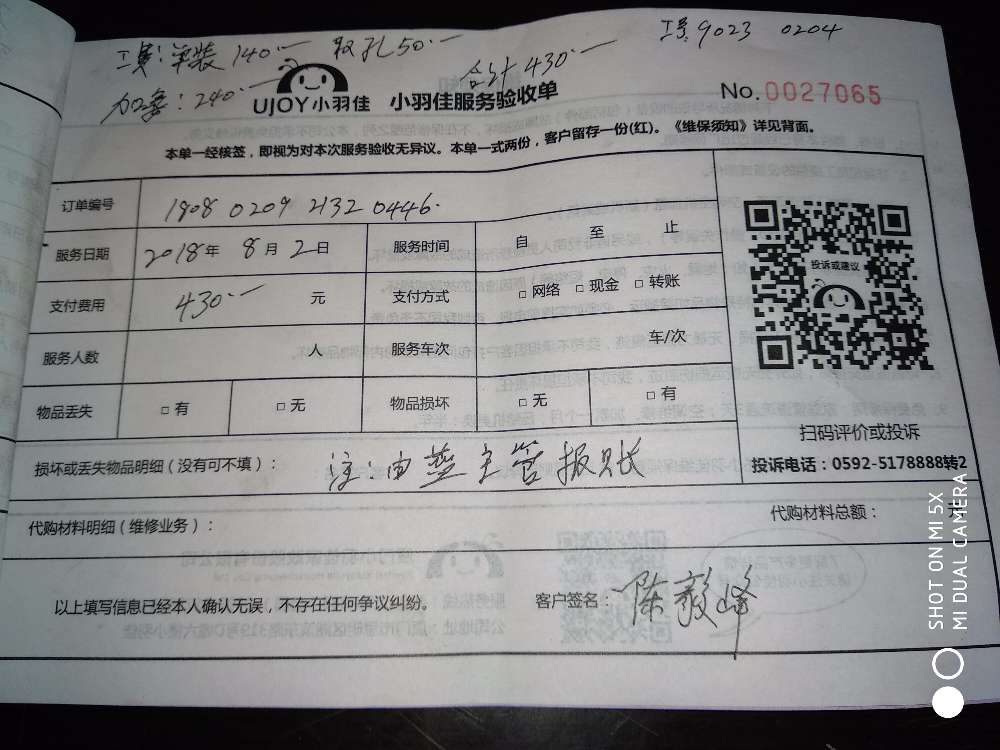 工费:单装140.一 取孔50.一 工号9023 0204
加氨:240.一 合计430.一
UJOY小羽佳 小羽佳服务验收单 No.0027065
本单一经核签,即视为对本次服务验收无异议。本单一式两份,客户留存一份(红)。《维保须知》详见背面。
订单编号 1808 0209 2132 0446.
服务日期 2018年 8月 2日 服务时间 自 至 止
投诉或建议
支付费用 430.一 元 支付方式 □网络 □现金 □转账
服务人数 人 服务车次 车/次
物品丢失 □有 □无 物品损坏 □无 □有
扫码评价或投诉
损坏或丢失物品明细(没有可不填): 注:由 主管报账
投诉电话:0592-5178888转2
代购材料明细(维修业务): 代购材料总额: 元
以上填写信息已经本人确认无误,不存在任何争议纠纷。 客户签名: 陈毅峰
SHOT ON MI 5X
MI DUAL CAMERA